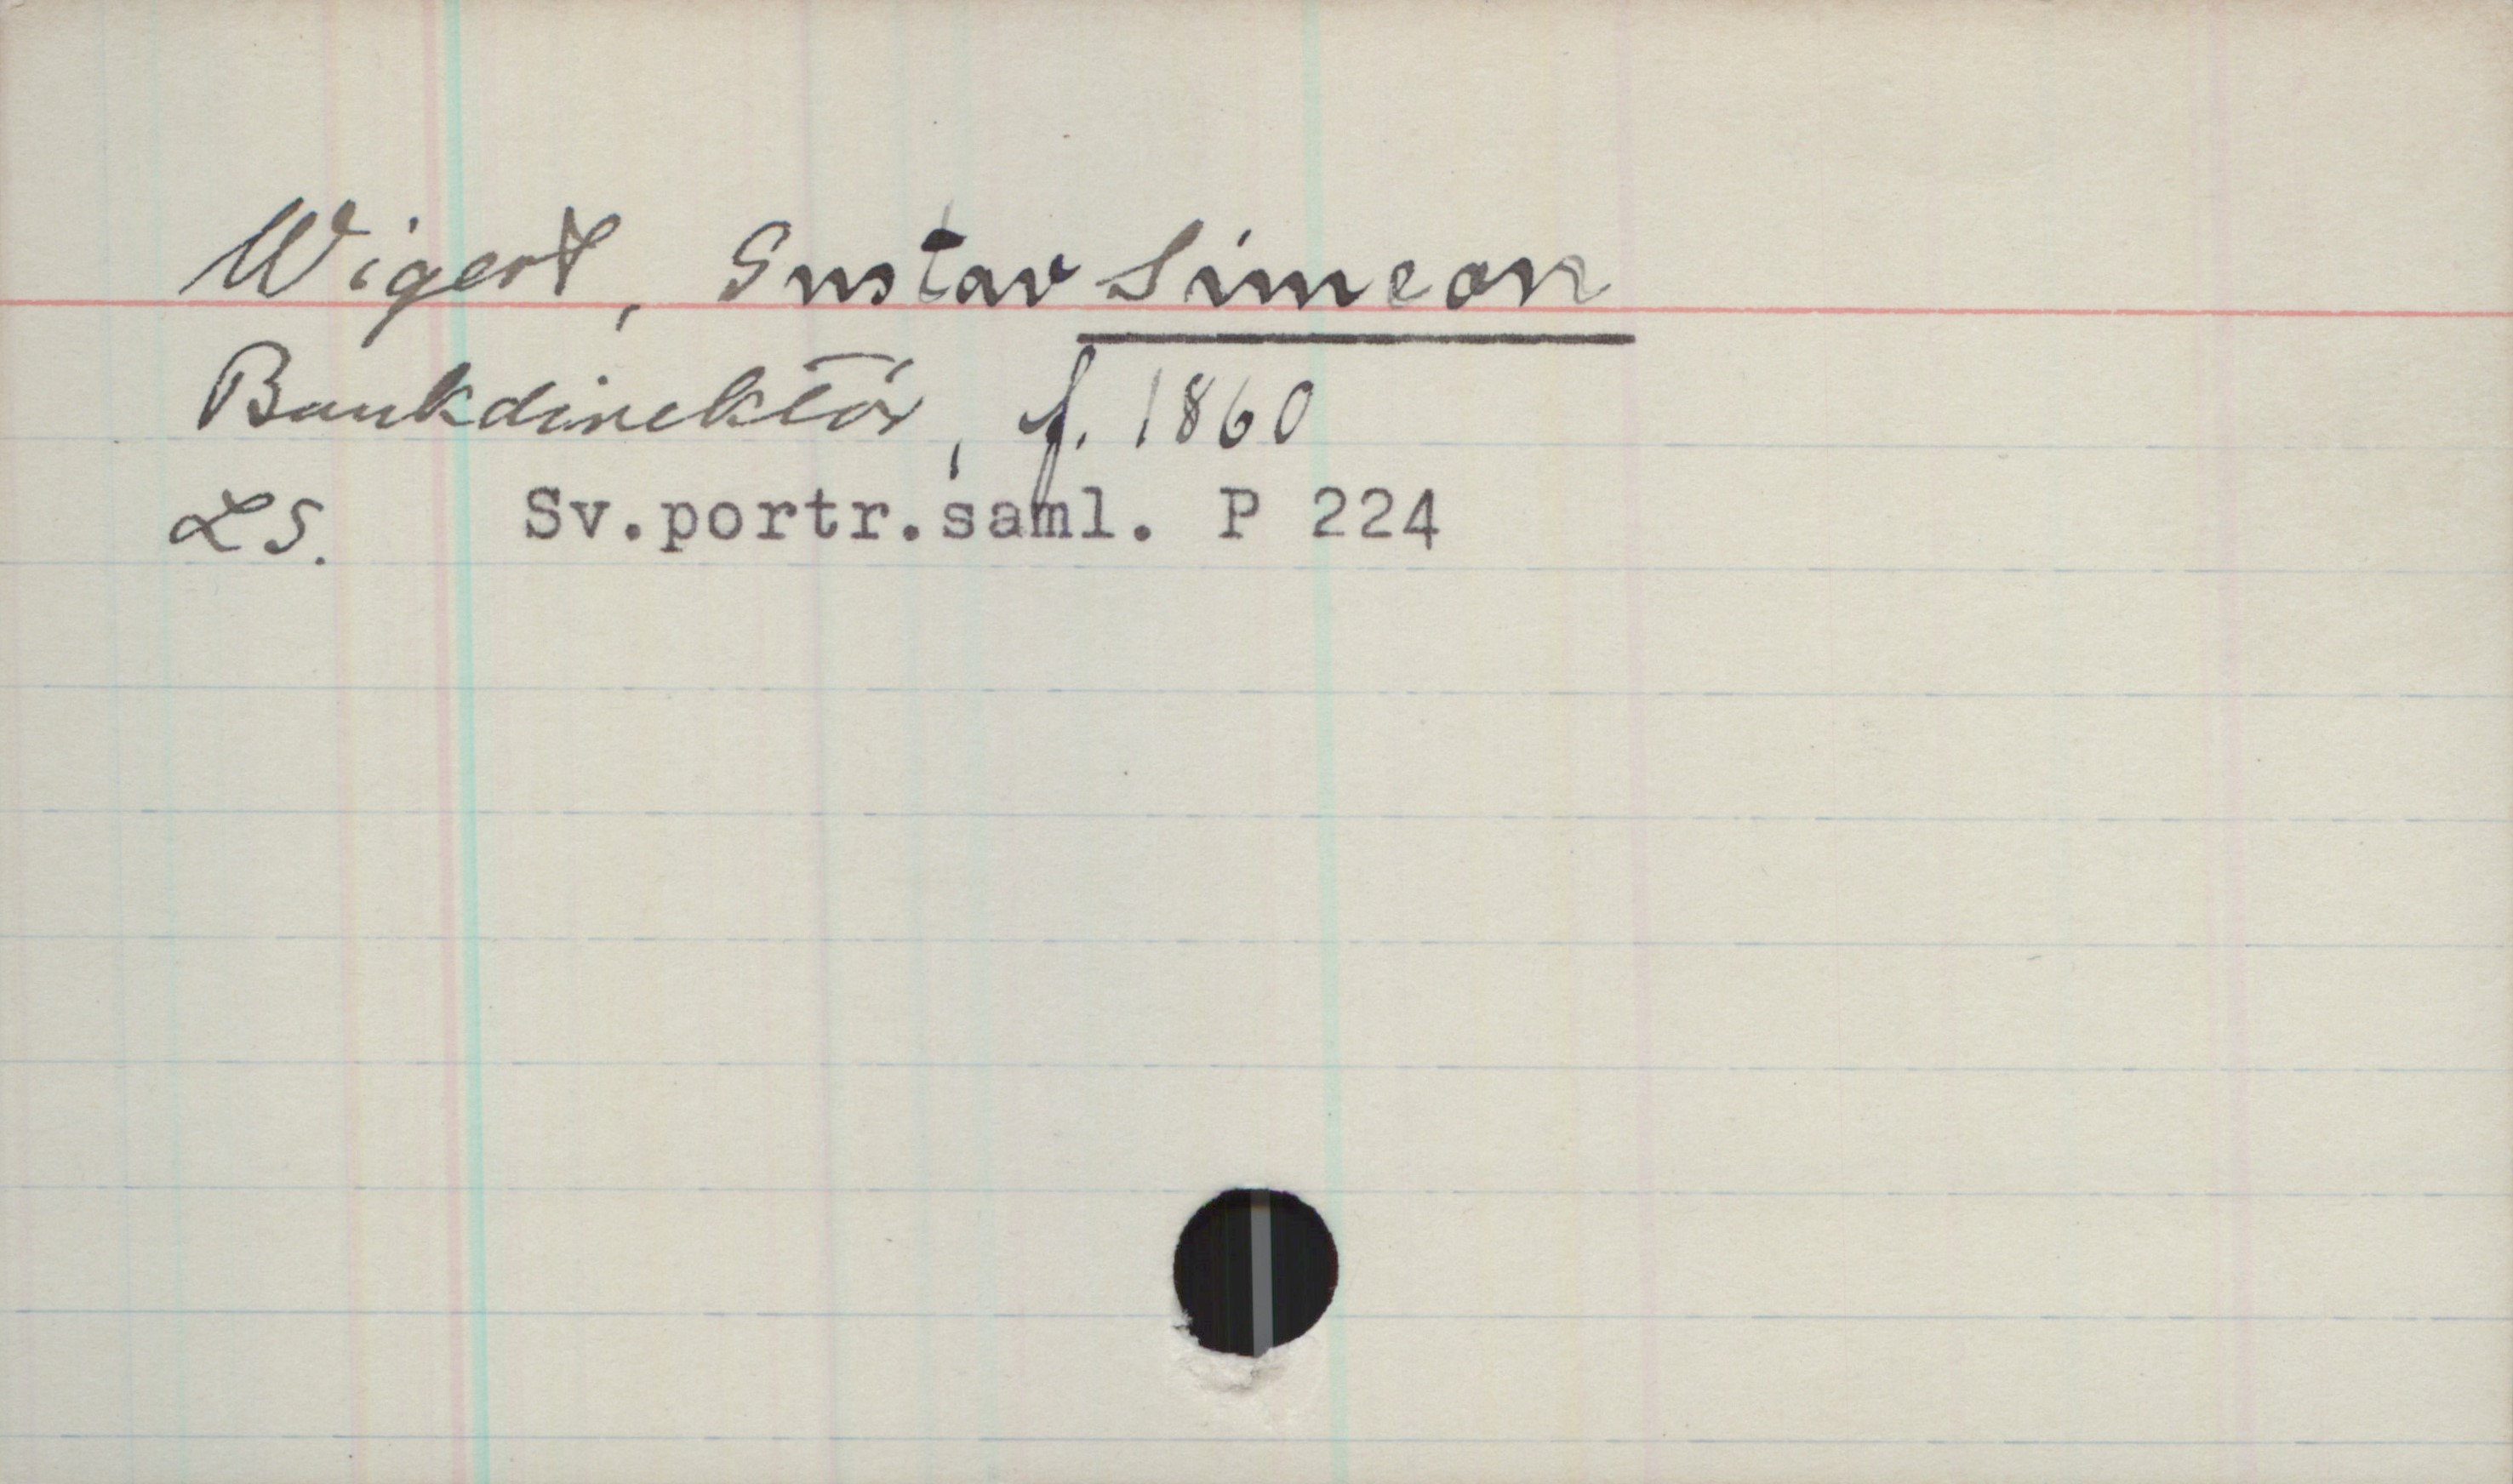 Wigert, Gustav Simeon
Bankdirektör, f. 1860
LS. Sv.portr.saml. P 224